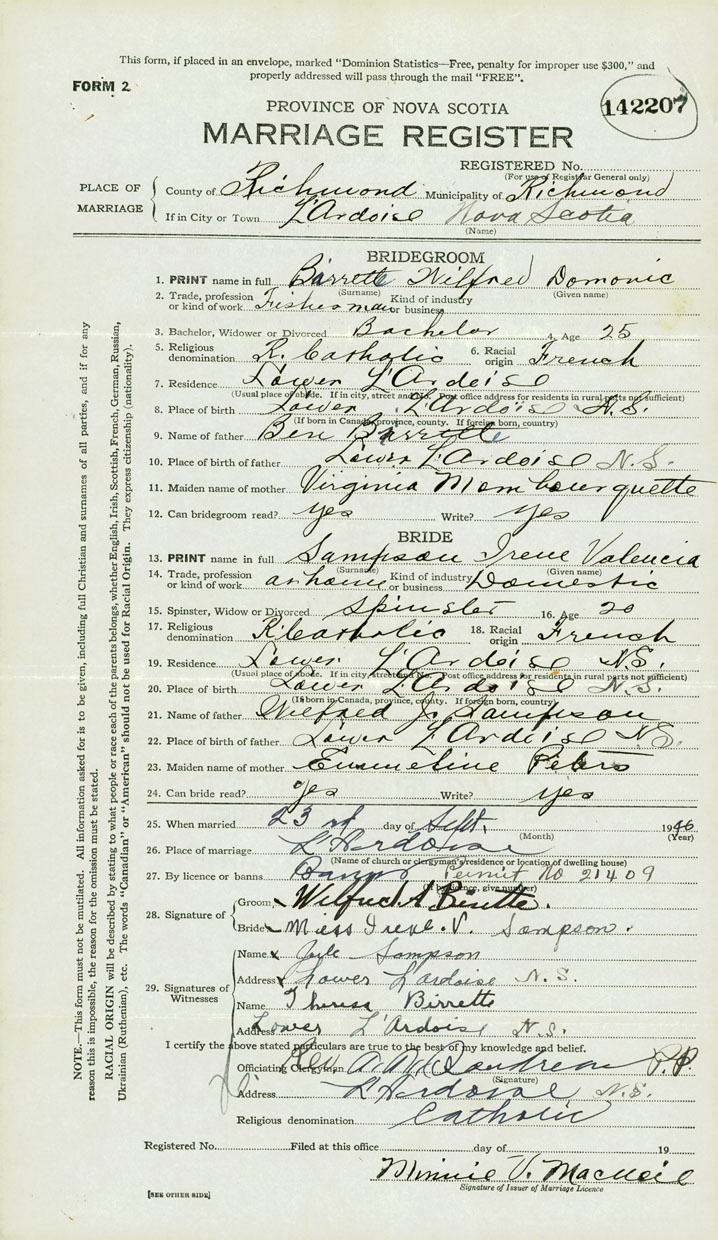 This form, if placed in an envelope, marked "Dominion Statistics—Free, penalty for improper use $300," and
properly addressed will pass through the mail "FREE".
FORM 2
142207
PROVINCE OF NOVA SCOTIA
MARRIAGE REGISTER
REGISTERED No.
(For use of Registrar General only)
PLACE OF MARRIAGE
County of Richmond Municipality of Richmond
If in City or Town L'Ardoise Nova Scotia
(Name)
BRIDEGROOM
1. PRINT name in full Birrette Wilfred Domonic
(Surname) (Given name)
2. Trade, profession or kind of work Fisherman Kind of industry or business
3. Bachelor, Widower or Divorced Bachelor 4. Age 25
5. Religious denomination R. Catholic 6. Racial origin French
7. Residence Lower L'Ardoise
(Usual place of abode. If in city, street and No. Post office address for residents in rural parts not sufficient)
8. Place of birth Lower L'Ardoise N.S.
(If born in Canada, province, county. If foreign born, country)
9. Name of father Ben Birrette
10. Place of birth of father Lower L'Ardoise N.S.
11. Maiden name of mother Virginia Mombourquette
12. Can bridegroom read? yes Write? yes
BRIDE
13. PRINT name in full Sampson Irene Valencia
(Surname) (Given name)
14. Trade, profession or kind of work at home Kind of industry or business Domestic
15. Spinster, Widow or Divorced Spinster 16. Age 20
17. Religious denomination R Catholic 18. Racial origin French
19. Residence Lower L'Ardoise N.S.
(Usual place of abode. If in city, street and No. Post office address for residents in rural parts not sufficient)
20. Place of birth Lower L'Ardoise N.S.
(If born in Canada, province, county. If foreign born, country)
21. Name of father Wilfred J. Sampson
22. Place of birth of father Lower L'Ardoise N.S.
23. Maiden name of mother Emmeline Peters
24. Can bride read? yes Write? yes
25. When married 23rd day of Sept. 1946
(Month) (Year)
26. Place of marriage L'Ardoise
(Name of church or clergyman's residence or location of dwelling house)
27. By licence or banns Banns Permit No 21409
(If by licence, give number)
28. Signature of
Groom Wilfred Birette.
Bride Miss Irene. V. Sampson.
29. Signatures of Witnesses
Name Sampson
Address Lower L'Ardoise N.S.
Name Theresa Birrette
Address Lower L'Ardoise N.S.
I certify the above stated particulars are true to the best of my knowledge and belief.
Officiating Clergyman Rev. P.P.
(Signature)
Address L'Ardoise N.S.
Religious denomination Catholic
Registered No. Filed at this office day of 19
Minnie V. MacNeil
Signature of Issuer of Marriage Licence
[SEE OTHER SIDE]
NOTE.—This form must not be mutilated. All information asked for is to be given, including full Christian and surnames of all parties, and if for any
reason this is impossible, the reason for the omission must be stated.
RACIAL ORIGIN will be described by stating to what people or race each of the parents belongs, whether English, Irish, Scottish, French, German, Russian,
Ukrainian (Ruthenian), etc. The words "Canadian" or "American" should not be used for Racial Origin. They express citizenship (nationality).